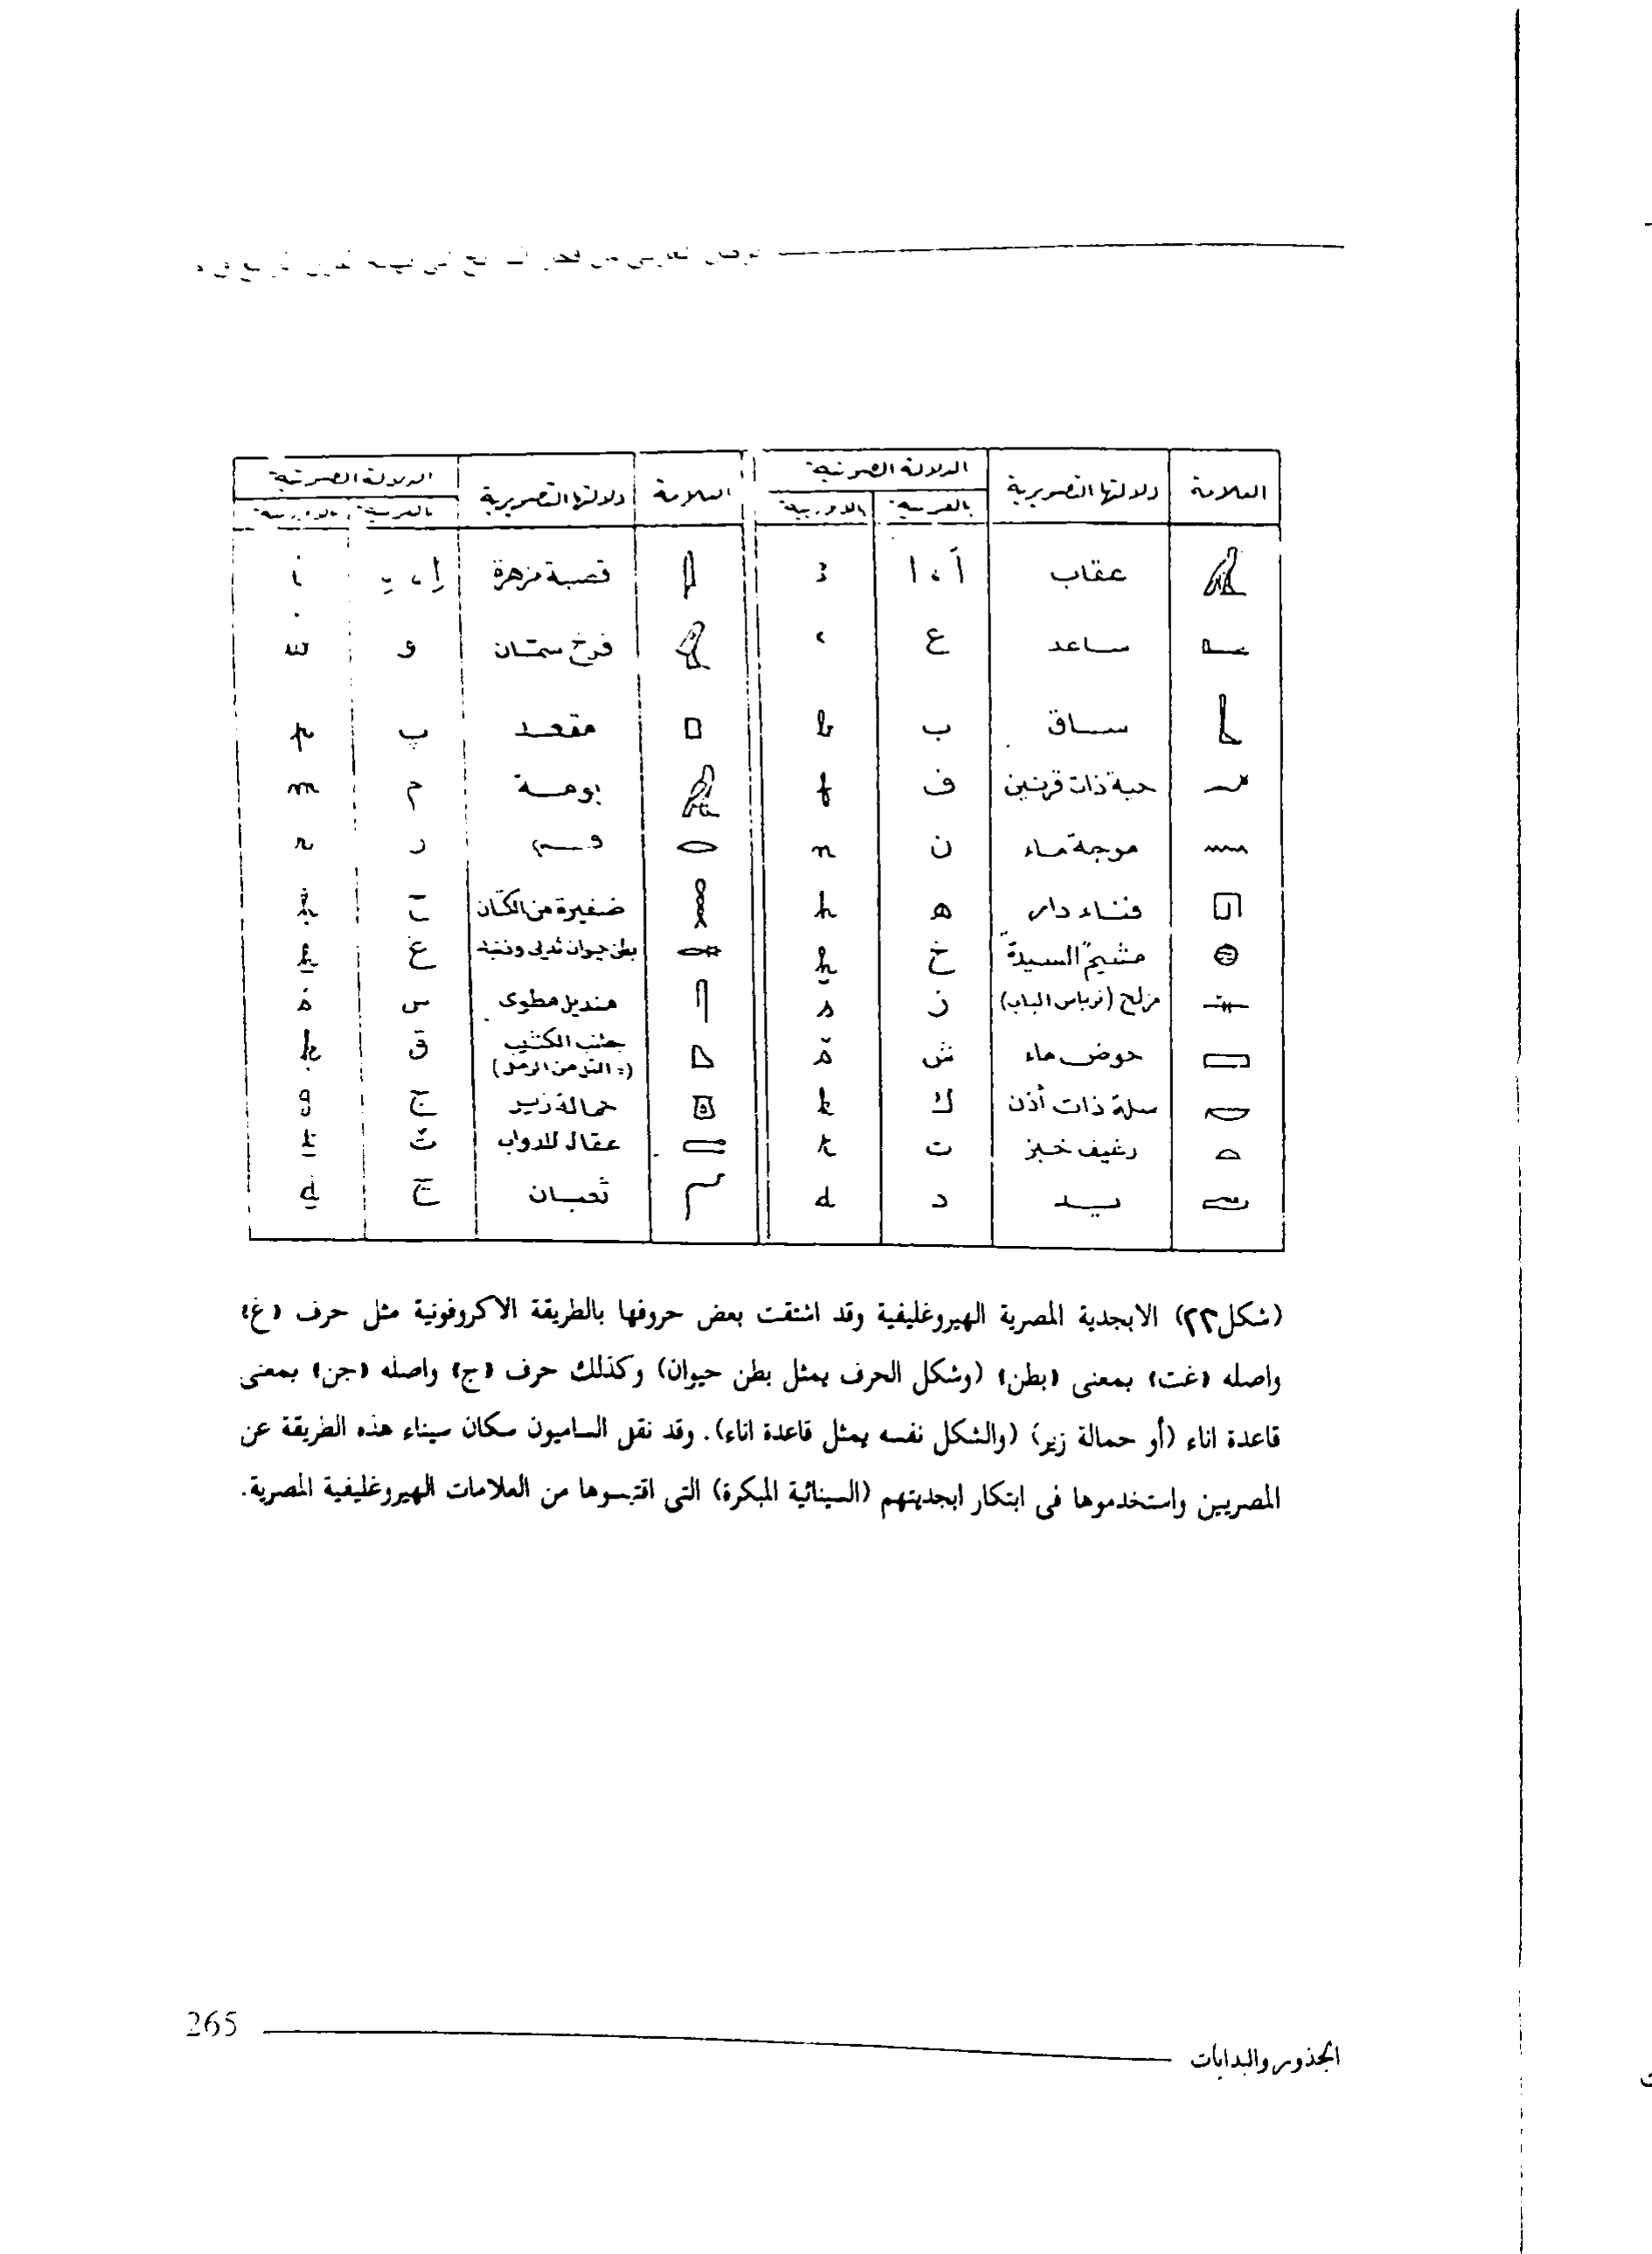 العلامة دلالتها التصويرية الدلالة الصوتية العلامة دلالتها التصويرية الدلالة الصوتية
بالعربية بالاوربية بالعربية بالاوربية
عقاب آ ، ا 3 قصبة مزهرة إ ، يـ i
ساعد ع ʿ فرخ سمّان و w
ساق ب b مقعد پ p
حية ذات قرنين ف f بومة م m
موجة ماء ن n فم ر r
فناء دار ه h ضفيرة من الكتّان ح ḥ
مشيم "السيدة" خ ḫ بطن حيوان ثديى وذنبه غ ẖ
مزلج (ترباس الباب) ز s منديل مطوى س ś
حوض ماء ش š جانب الكثيب ق ḳ
(= التل من الرمل)
سلة ذات أذن ك k حمالة زير ج g
رغيف خبز ت t عقال للدواب ث ṯ
يد د d ثعبان ج ḏ
(شكل٢٣) الابجدية المصرية الهيروغليفية وقد اشتقت بعض حروفها بالطريقة الاكروفونية مثل حرف «غ»
واصله «غت» بمعنى «بطن» (وشكل الحرف يمثل بطن حيوان) وكذلك حرف «ج» واصله «جن» بمعنى
قاعدة اناء (أو حمالة زير) (والشكل نفسه يمثل قاعدة اناء). وقد نقل الساميون سكان سيناء هذه الطريقة عن
المصريين واستخدموها فى ابتكار ابجديتهم (السينائية المبكرة) التى اقتبسوها من العلامات الهيروغليفية المصرية.
265 الجذور والبدايات